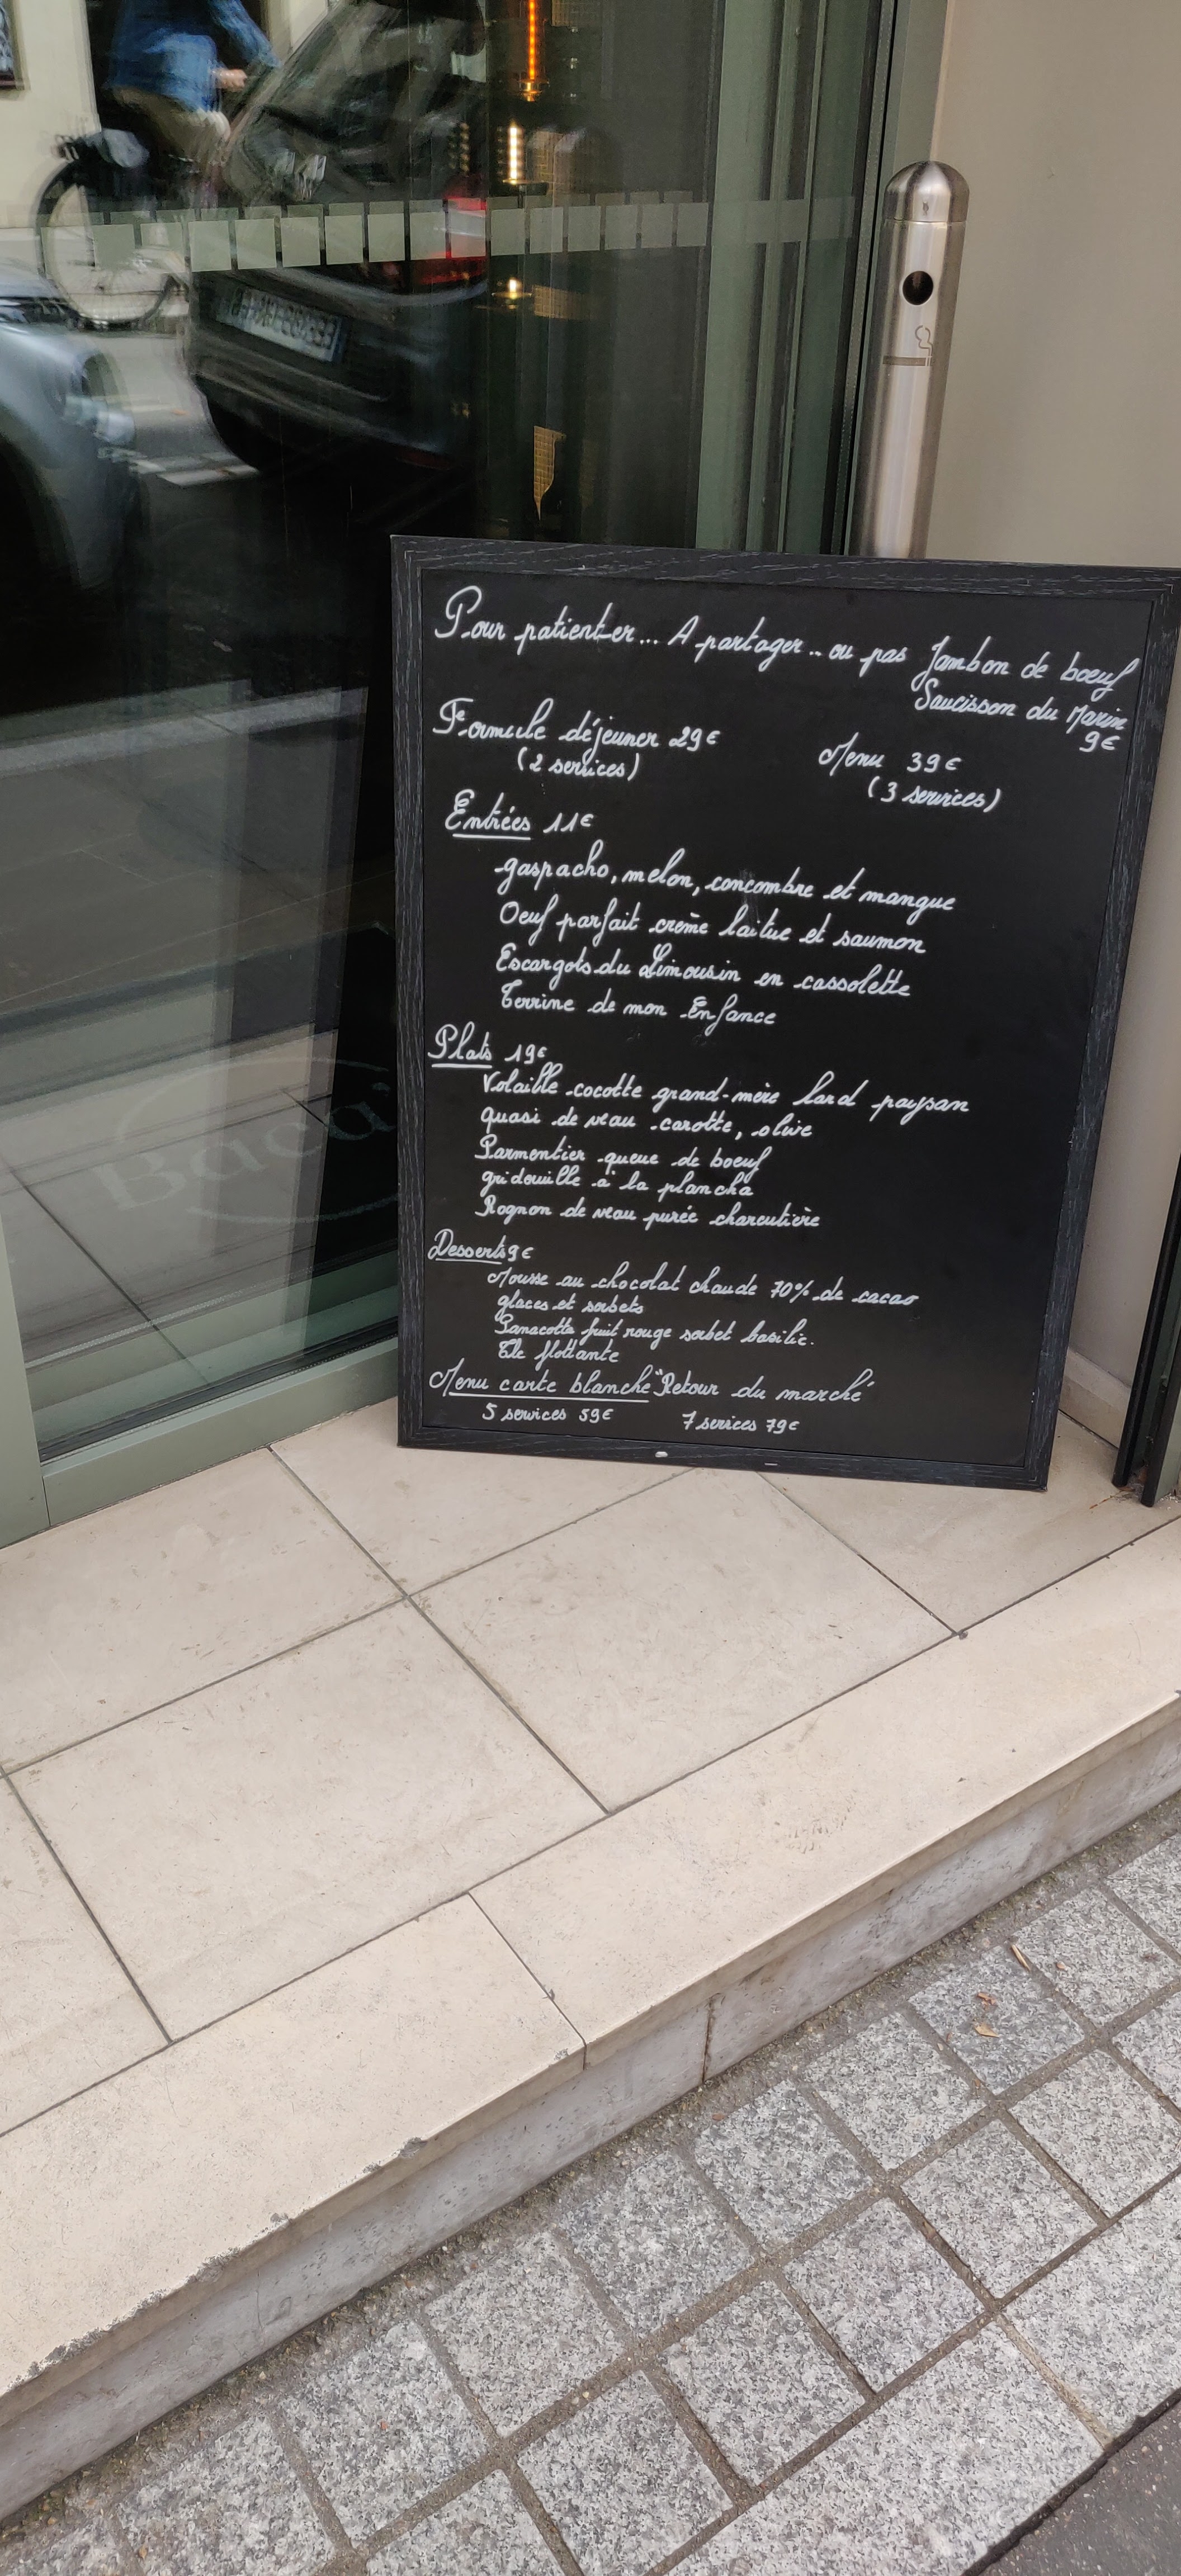 Pour patienter... A partager.. ou pas Jambon de boeuf
Saucisson du Marin
9€
Formule déjeuner 29€
(2 services)
Menu 39€
(3 services)
Entrées 11€
gaspacho, melon, concombre et mangue
Oeuf parfait crème laitue et saumon
Escargots du Limousin en cassolette
Terrine de mon Enfance
Plats 19€
Volaille cocotte grand-mère lard paysan
quasi de veau carotte, olive
Parmentier queue de boeuf
gridouille à la plancha
Rognon de veau purée charcutière
Desserts 9€
Mousse au chocolat chaude 70% de cacao
glaces et sorbets
Panacotta fruit rouge sorbet basilic.
Ile flottante
Menu carte blanche "Retour du marché"
5 services 59€ 7 services 79€